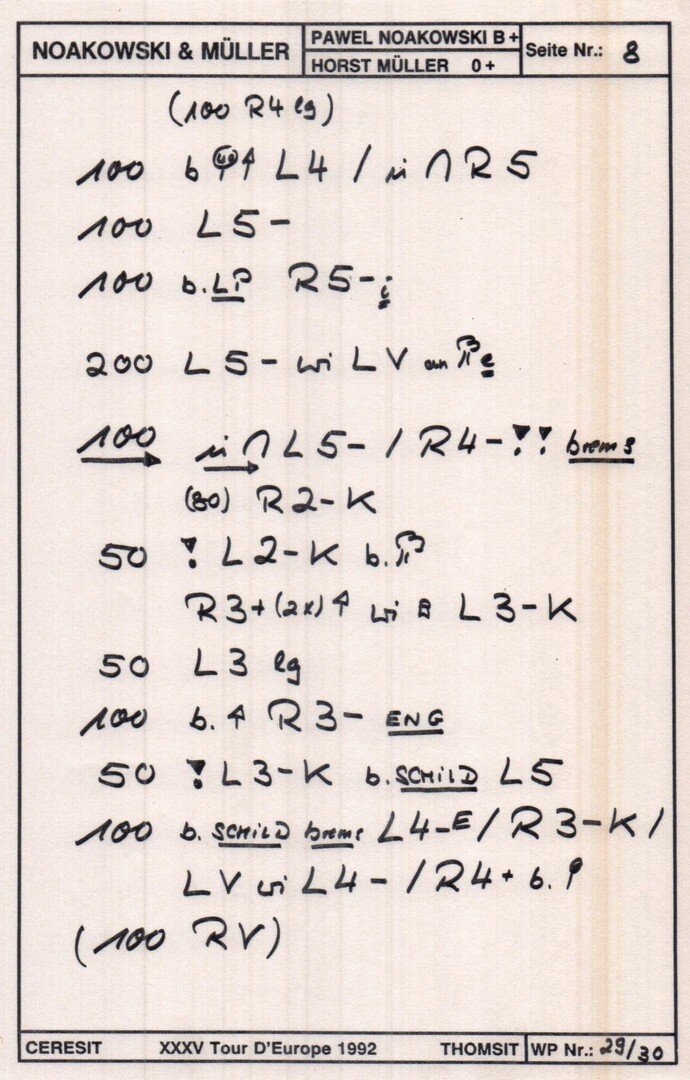 NOAKOWSKI & MÜLLER
PAWEL NOAKOWSKI B+
HORST MÜLLER 0+
Seite Nr.: 8
(100 R4 lg)
100 b ↑ L4 / in ∩ R5
100 L5-
100 b. LP R5-i
200 L5- wi LV an e
100 in ∩ L5- / R4- !! brems
(80) R2-K
50 ! L2-K b.
R3+(2x) ↑ wi L3-K
50 L3 lg
100 b. ↑ R3- ENG
50 ! L3-K b. SCHILD L5
100 b. SCHILD brems L4-E / R3-K /
LV wi L4- / R4+ b.
(100 RV)
CERESIT XXXV Tour D'Europe 1992 THOMSIT WP Nr.: 29/30